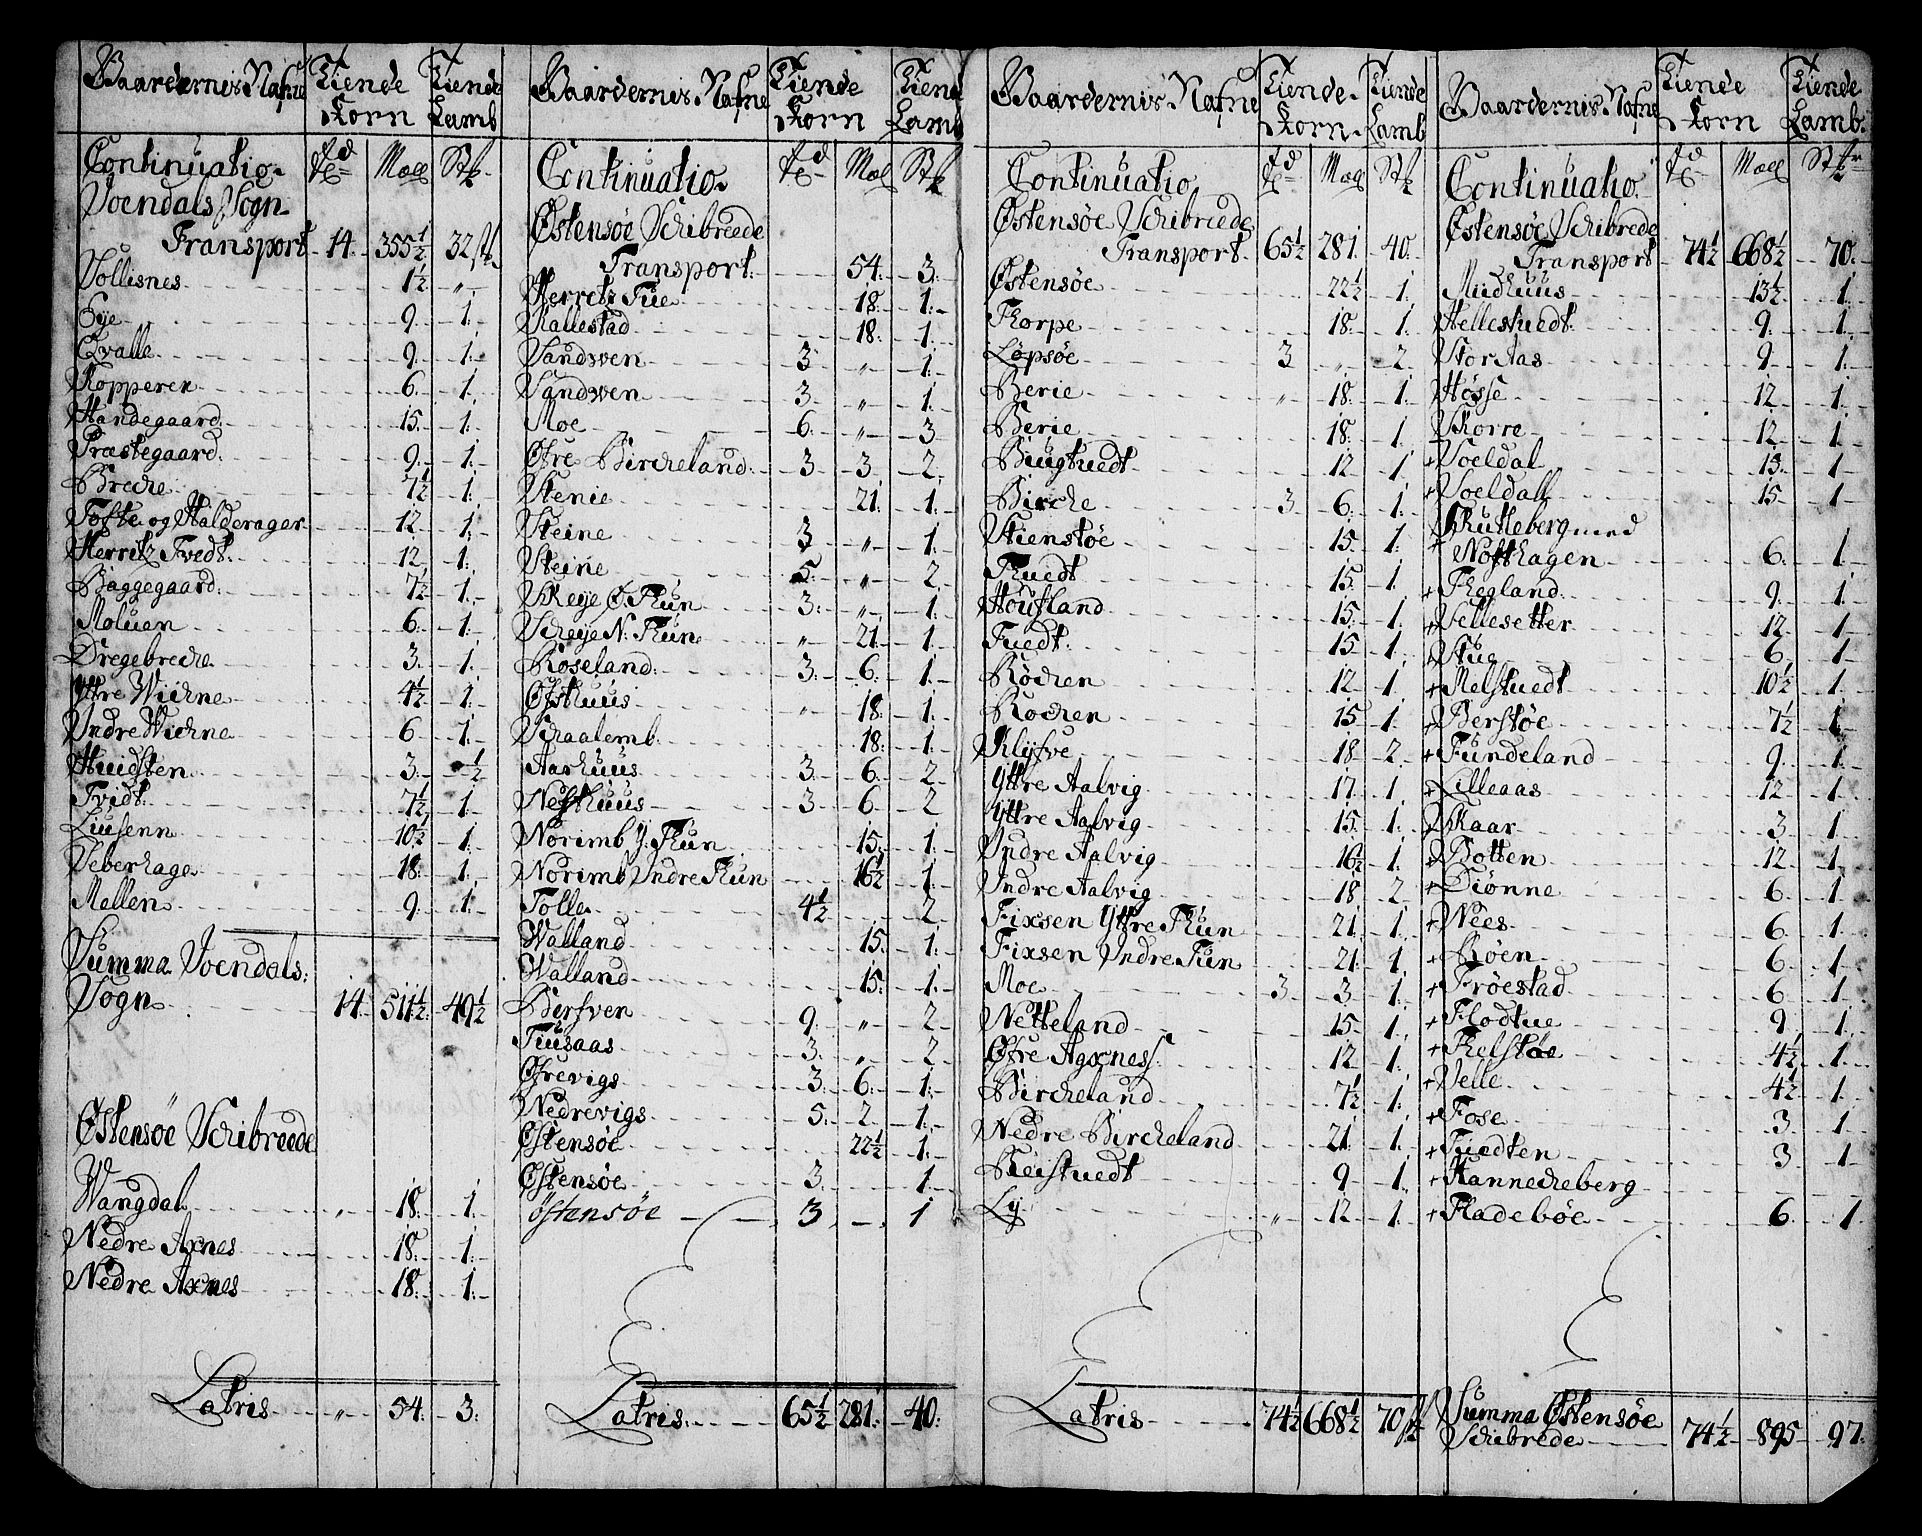 Gaardernis Nafne Tiende Korn Tiende Lamb
Continuatio Td Mæll Stk
Joendals Sogn
Transport 14 355½ 32 stk
Sollisnes 1½ „
Eye 9 1
Qvalle 9 1
Kopperen 6 1
Handegaard 15 1
Præstegaard 9 1
Breche 7½ 1
Tofte og Halderager 12 1
Herritz Tvedt 12 1
Baggegaard 7½ 1
Moluen 6 1
Dregebreche 3 1
Yttre Wichne 4½ 1
Indre Wichne 6 1
Huidsten 3 ½
Tvidt 7½ 1
Liusenn 10½ 1
Seberhage 18 1
Mellen 9 1
Summa Joendals
Sogn 14 511½ 49½
Østensøe Schibreede
Wangdal „ 18 1
Nedre Axnes 18 1
Nedre Axnes 18 1
Latris „ 54 3
Gaardernis Nafne Tiende Korn Tiende Lamb
Continuatio Td Mæl Stk
Østensøe Schibreede
Transport 54 3
Herretz Tue 18 1
Kallestad 18 1
Sandwen 3 „ 1
Sandwen 3 „ 1
Moe 6 „ 3
Øfre Bircheland 3 3 2
Stenie 21 1
Steine 3 „ 1
Steine 5 „ 2
Skeye Ø. Thun 3 „ 1
Scheye N. Thun „ 21 1
Roseland 3 6 1
Østhuus „ 18 1
Schaalemb 18 1
Aarhuus 3 6 2
Nesthuus 3 6 2
Norimb Y. Thun 15 1
Norimb Indre Thun 16½ 1
Tolle 4½ 2
Walland 15 1
Walland 15 1
Bersven 9 „ 2
Tiusaas 3 „ 2
Øfrevigs 3 6 1
Nedrevigs 5 2 1
Østensøe 22½ 1
Østensøe 3 1
Østensøe 3 1
Latris 65½ 281 40
Gaardernis Nafne Tiende Korn Tiende Lamb
Continuatio Td Mæll Stk
Østensøe Schibreede
Transport 65½ 281 40
Østensøe 22½ 1
Thorpe 18 1
Løpsøe 3 „ 2
Berie „ 18 1
Berie 18 1
Biugtuedt 12 1
Birche 3 6 1
Stienstøe 15 1
Thuedt 15 1
Houfland 15 1
Tuedt 15 1
Røchen 12 1
Rochen 15 1
Klyfve 18 2
Yttre Aalvig 17 1
Yttre Aalvig 15 1
Indre Aalvig 16½ 1
Indre Aalvig 18 2
Fixsen Yttre Thun 21 1
Fixsen Indre Tun 21 1
Moe 3 3 1
Netteland 15 1
Øfre Axnes 12 1
Bircheland 7½ 1
Nedre Bircheland 21 1
Reistuedt 9 1
Ly „ 12 1
Latris 74½ 668½ 70 stk
Gaardernis Nafne Tiende Korn Tiende Lamb
Continuatio Td Mæll Stkr
Østensøe Schibrede
Transport 74½ 668½ 70
Mudhuus 13½ 1
Hellestuedt 9 1
Stordas 9 1
Høsse 12 1
Skorre 12 1
+ Soeldal 15 1
+ Soeldall 15 1
+ Skutteberg med
Nøsthagen 6 1
+ Thegland 9 1
+ Sellesetter 12 1
+ Stug 6 1
+ Melstuedt 10½ 1
+ Berstøe 7½ 1
+ Tundeland 9 1
+ Lilleaas 12 1
+ Skaar 3 1
+ Botten 12 1
+ Biønne 6 1
+ Nees 6 1
+ Røen 6 1
+ Frøestad 6 1
+ Flodtue 9 1
+ Thelstøe 4½ 1
+ Velle 4½ 1
+ Fose 3 1
+ Tuedten 3 1
+ Hanneckeberg
+ Fladebøe 6 1
Summa Østensøe
Schibrede 74½ 895 97